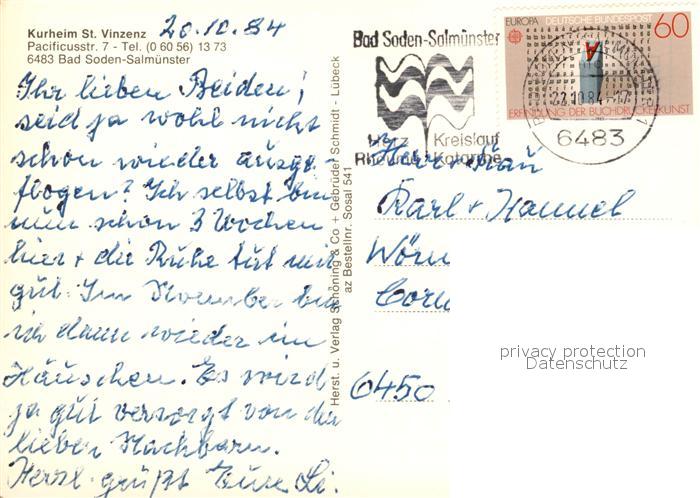 Kurheim St. Vinzenz
Pacificusstr. 7 - Tel. (0 60 56) 13 73
6483 Bad Soden-Salmünster
20.10.84
Ihr lieben Beiden,
seid ja wohl nicht
schon wieder ausge-
flogen? Ich selbst bin
nun schon 3 Wochen
hier + die Ruhe tut mir
gut. Im November bin
ich dann wieder im
Häuschen. Es wird
ja gut versorgt von den
lieben Nachbarn.
Herzl. grüßt Eure Li.
Herst. u. Verlag Schöning & Co + Gebrüder Schmidt - Lübeck
az Bestellnr. Sosal 541
Bad Soden-Salmünster
Herz Kreislauf
Rheuma Katarrhe
EUROPA DEUTSCHE BUNDESPOST 60
A
ERFINDUNG DER BUCHDRUCKERKUNST
22.10.84-17
6483
Herr + Frau
Karl +
Wörn
Corn
6450
privacy protection
Datenschutz